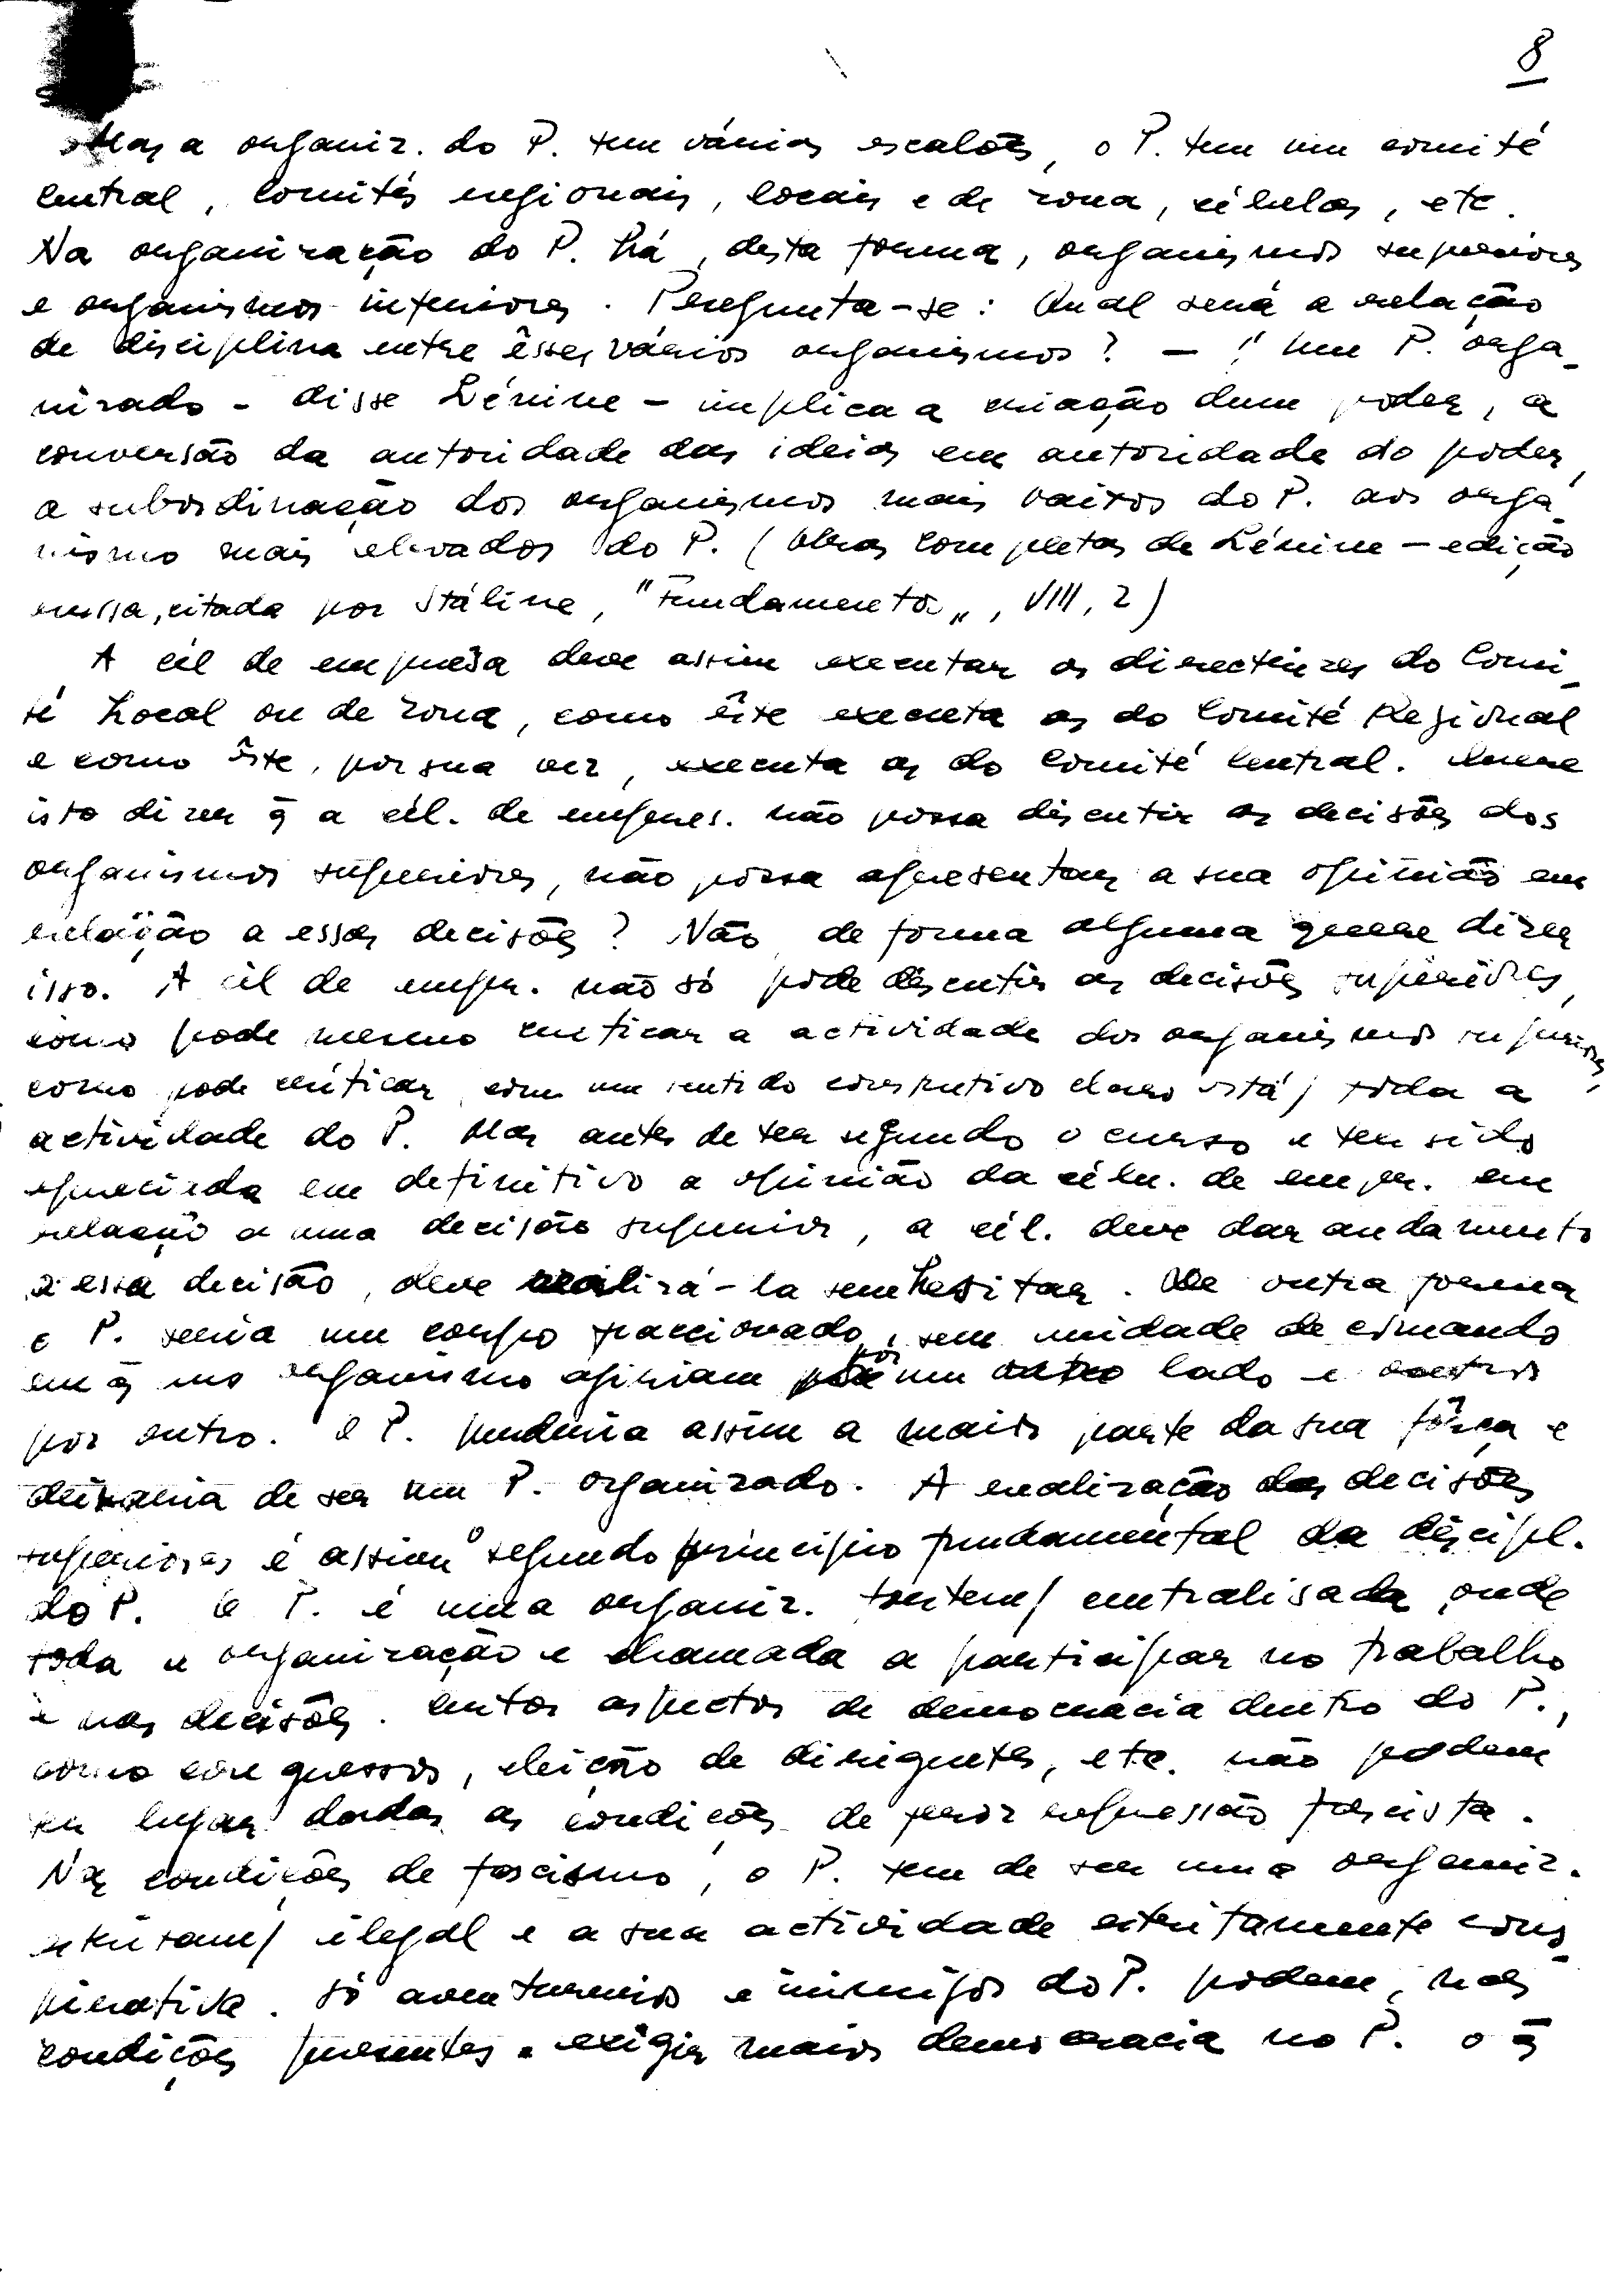 8
Mas a organiz. do P. tem vários escalões, o P. tem um comité
central, comités regionais, locais e de zona, células, etc.
Na organização do P. há, desta forma, organismos superiores
e organismos inferiores. Pregunta-se: Qual será a relação
de disciplina entre êsses vários organismos? — "Um P. orga-
nizado - disse Lénine - implica a criação dum poder, a
conversão da autoridade das ideias em autoridade do poder,
a subordinação dos organismos mais baixos do P. aos orga-
nismo mais elevados do P. (Obras completas de Lénine - edição
russa, citada por Stáline, "Fundamentos", VIII, 2)
A cél de emprêsa deve assim executar as directrizes do Comi-
té Local ou de zona, como êste executa as do Comité Regional
e como êste, por sua vez, executa as do Comité Central. Quere
isto dizer q̃ a cél. de empres. não possa discutir as decisões dos
organismos superiores, não possa apresentar a sua opinião em
relação a essas decisões? Não, de forma alguma quere dizer
isso. A cél de empr. não só pode discutir as decisões superiores,
como pode mesmo criticar a actividade dos organismos superiores,
como pode criticar com um sentido construtivo claro está) toda a
actividade do P. Mas antes de ter seguido o curso e ter sido
apreciada em definitivo a opinião da célu. de empr. em
relação a uma decisão superior, a cél. deve dar andamento
a essa decisão, deve realizá-la sem hesitar. De outra forma
o P. seria um corpo fraccionado, sem unidade de comando
em q̃ uns organismo agiriam por um lado e outros
por outro. O P. perderia assim a maior parte da sua fôrça e
deixaria de ser um P. organizado. A realização das decisões
superiores é assim o segundo princípio fundamental da discipl.
do P. O P. é uma organiz. fortem/ centralisada, onde
toda a organização é chamada a participar no trabalho
e nas decisões. Certos aspectos de democracia dentro do P.,
como congressos, eleição de dirigentes, etc. não podem
ter lugar dadas as condições de feroz repressão fascista.
Nas condições de fascismo, o P. tem de ser uma organiz.
estritam/ ilegal e a sua actividade estritamente cons-
pirativa. Só aventureiros e inimigos do P. podem, nas
condições presentes, exigir mais democracia no P. o q̃